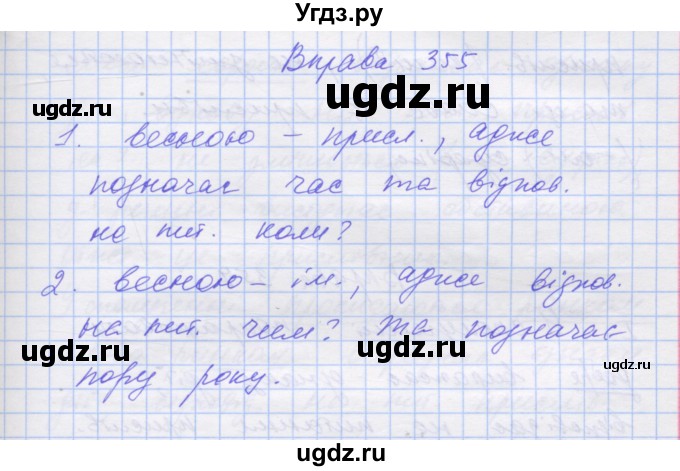 Угдз.ру
Вправа 355
ugdz.ru
ugdz.ru
ugdz.ru
1. весною – присл., адже
позначає час та відпов.
ugdz.ru
на пит. коли?
2. весною – ім., адже відпов.
на пит. чим? та позначає
ugdz.ru
ugdz.ru
ugdz.ru
пору року.
ugdz.ru